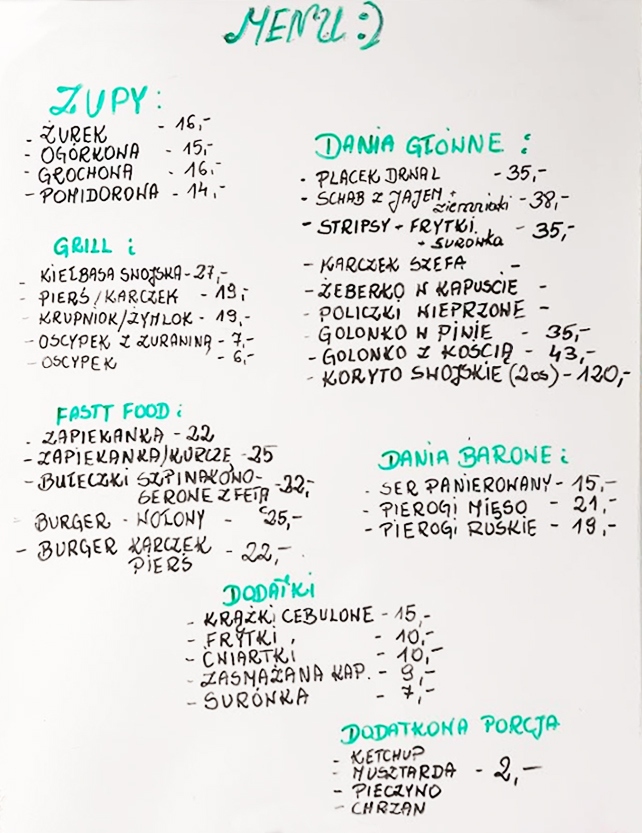 MENU :)
ZUPY:
- ŻUREK - 16,-
- OGÓRKOWA - 15,-
- GROCHOWA - 16,-
- POMIDOROWA - 14,-
GRILL :
- KIEŁBASA SWOJSKA - 27,-
- PIERŚ/KARCZEK - 19,-
- KRUPNIOK/ŻYMLOK - 19,-
- OSCYPEK Z ŻURAWINĄ - 7,-
- OSCYPEK - 6,-
FASTT FOOD :
- ZAPIEKANKA - 22
- ZAPIEKANKA/KURCZĘ - 25
- BUŁECZKI SZPINAKOWO-
SEROWE Z FETĄ - 22,-
BURGER - WOŁOWY - 25,-
- BURGER KARCZEK
PIERŚ - 22,-
DANIA GŁÓWNE :
- PLACEK DRWAL - 35,-
- SCHAB Z JAJEM + ziemniaki - 38,-
- STRIPSY + FRYTKI
+ SURÓWKA - 35,-
- KARCZEK SZEFA -
- ŻEBERKO W KAPUŚCIE -
- POLICZKI WIEPRZOWE -
- GOLONKO W PIWIE - 35,-
- GOLONKO Z KOŚCIĄ - 43,-
- KORYTO SWOJSKIE (2os) - 120,-
DANIA BAROWE :
- SER PANIEROWANY - 15,-
- PIEROGI MIĘSO - 21,-
- PIEROGI RUSKIE - 19,-
DODATKI
- KRĄŻKI CEBULOWE - 15,-
- FRYTKI - 10,-
- ĆWIARTKI - 10,-
- ZASMAŻANA KAP. - 9,-
- SURÓWKA - 7,-
DODATKOWA PORCJA
- KETCHUP
- MUSZTARDA - 2,-
- PIECZYWO
- CHRZAN